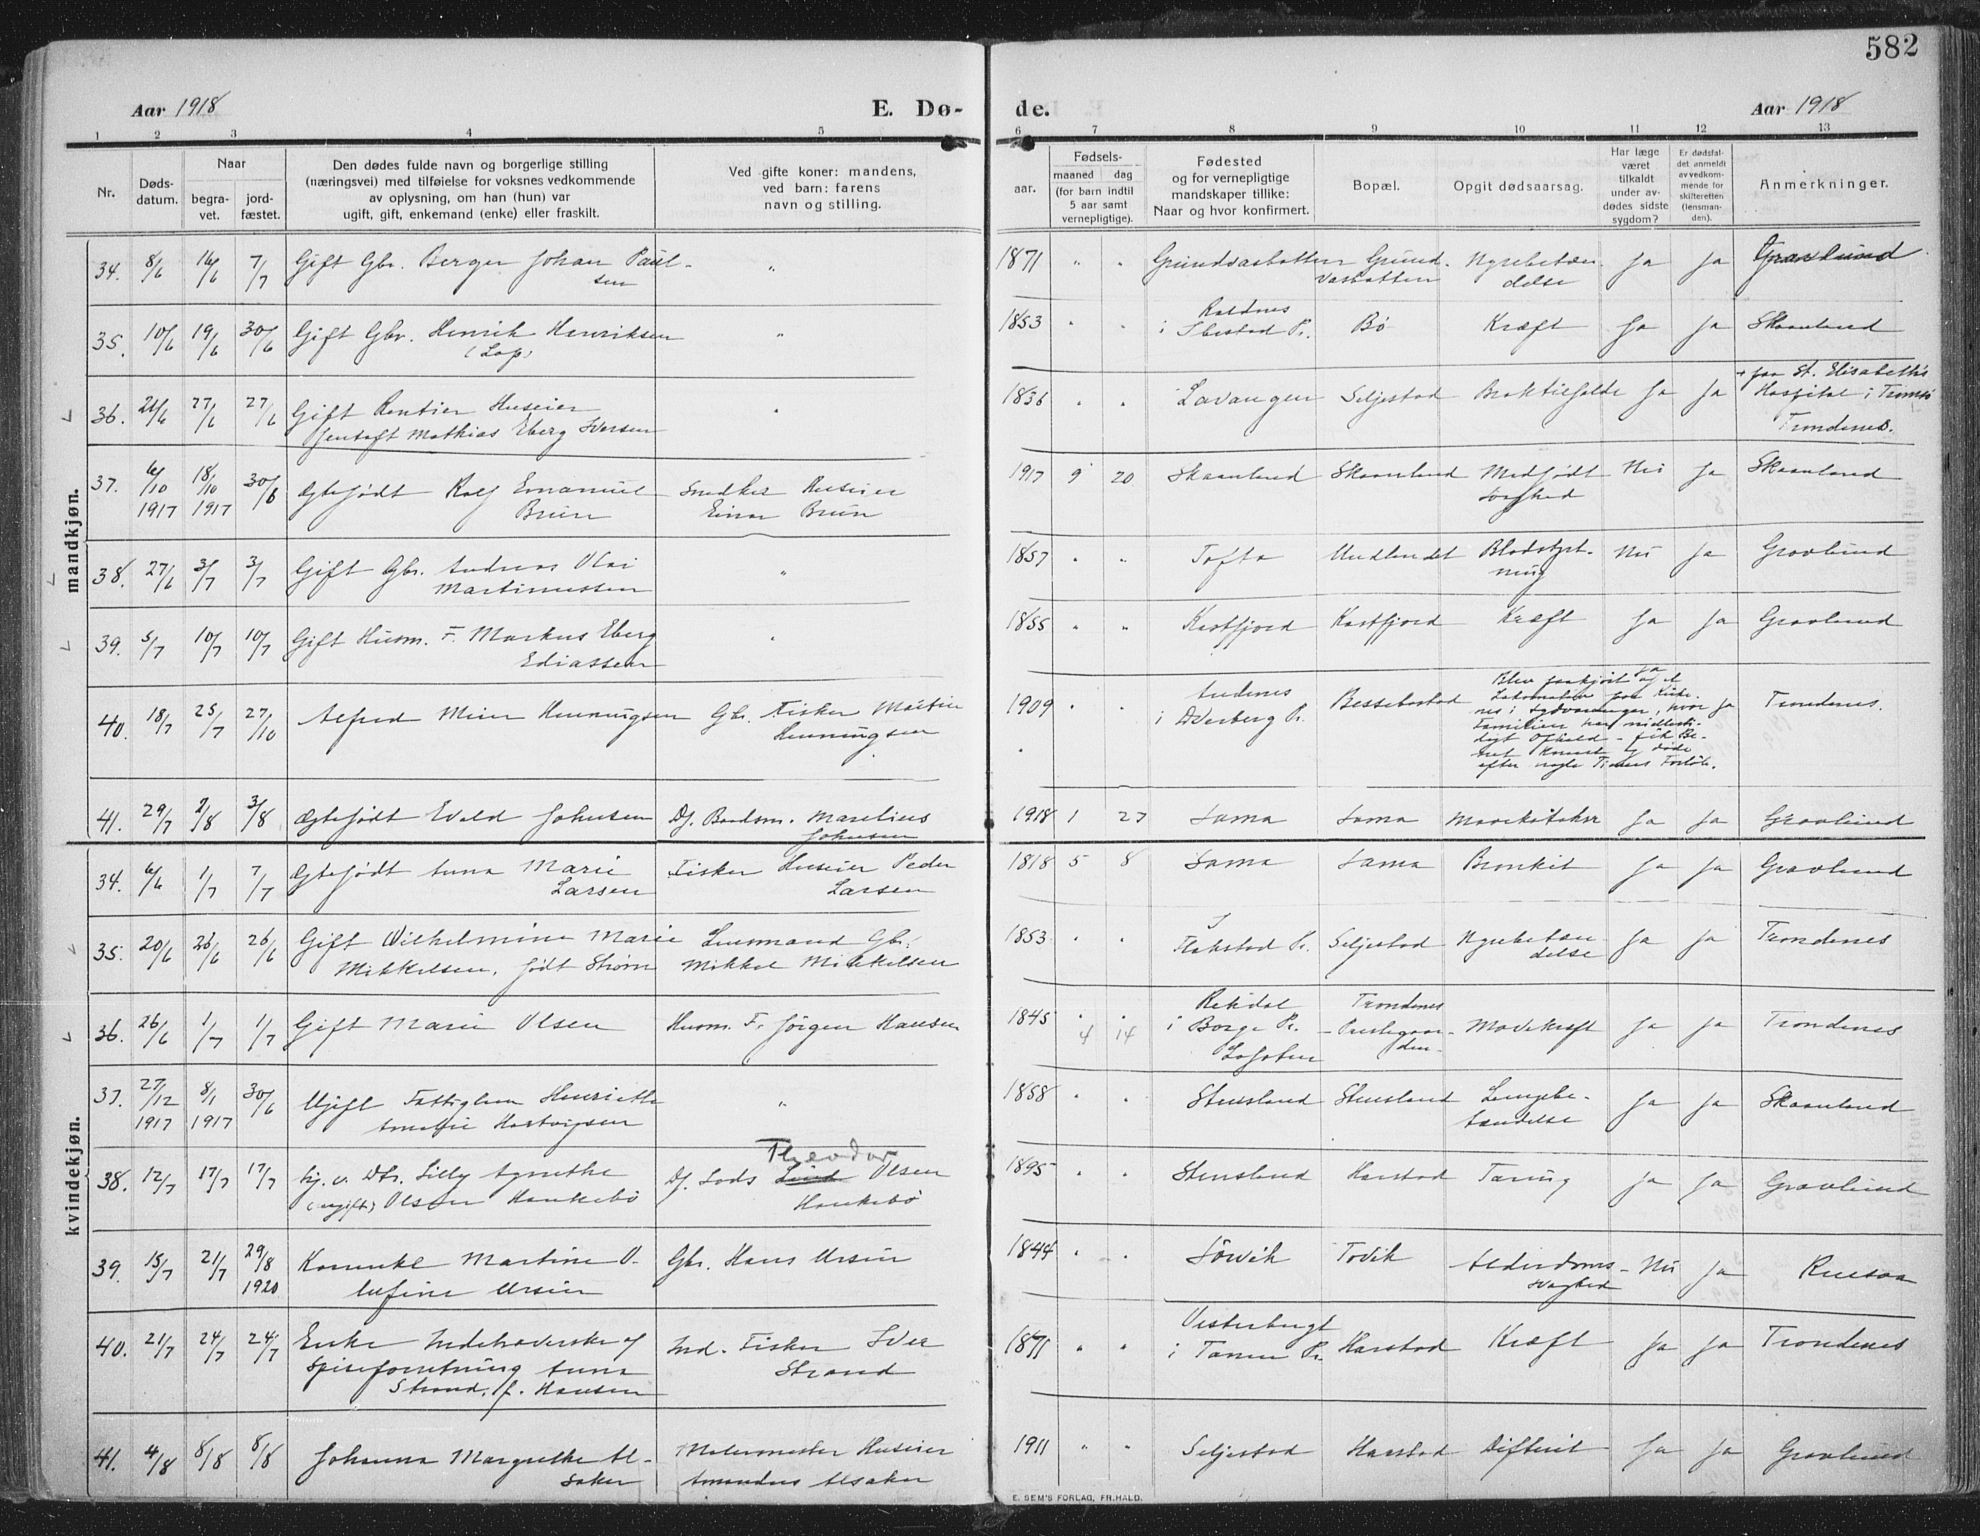 582
Aar 1918 E. Dø- de. Aar 1918
1 2 3 4 5 6 7 8 9 10 11 12 13
Nr. Døds-datum. Naar begra-vet. jord-fæstet. Den dødes fulde navn og borgerlige stilling (næringsvei) med tilføielse for voksnes vedkommende av oplysning, om han (hun) var ugift, gift, enkemand (enke) eller fraskilt. Ved gifte koner: mandens, ved barn: farens navn og stilling. Fødsels- aar. maaned dag (for barn indtil 5 aar samt vernepligtige). Fødested og for vernepligtige mandskaper tillike: Naar og hvor konfirmert. Bopæl. Opgit dødsaarsag. Har læge været tilkaldt under av-dødes sidste sygdom? Er dødsfal-det anmeldt av vedkom-mende for skifteretten (lensman-den). Anmerkninger.
mandkjøn.
34. 8/6 16/6 7/7 Gift Gbr. Berger Johan Paul-sen " 1871 " " Grundvasbotten Ja Ja Gravlund
35. 10/6 19/6 30/6 Gift Gbr. Henrik Henriksen (Lap) " 1853 " " i Ibestad Pr. Bø Kræft Ja Ja Skaanland
36. 21/6 27/6 27/6 Gift Rentier Huseier Jentoft Mathias Eberg Iversen " 1836 " " Lavangen Seljestad Ja Ja + paa St. Elisabeths Hospital i Tromsø Trondenes.
37. 6/10 1917 18/10 1917 30/6 Ægtefødt Rolf Emanuel Bruun Snedker Huseier Einar Bruun 1917 9 20 Skaanland Skaanland Medfødt svaghed Nei Ja Skaanland
38. 27/6 3/7 3/7 Gift Gbr. Andreas Olai Martinussen " 1857 " " Tofta Undlandet Blodstyrt-ning Nei Ja Gravlund
39. 5/7 10/7 10/7 Gift Husm. F. Markus Eberg Ediassen " 1855 " " Kastfjord Kastfjord Kræft Ja Ja Gravlund
40. 18/7 25/7 27/10 Alfred Meier Henningsen Gbr. Fisker Martin Henningsen 1909 Andenes i Dverberg Pr. Bessebostad Blev paakjørt af et Lokomotiv paa Kirke-nes i Sydvaranger, hvor Familien har midlerti-digt Ophold - fik Be-net knust og døde efter nogle Timers Forløb. Ja Ja Trondenes.
41. 29/7 2/8 3/8 Ægtefødt Evald Johnsen Df. Baadsm. Marelius Johnsen 1918 1 27 Sama Sama Mavekatahr Ja Ja Gravlund
kvindekjøn.
34. 6/6 1/7 7/7 Ægtefødt Anna Marie Larsen Fisker Huseier Peder Larsen 1818 5 8 Sama Sama Bronkit Ja Ja Gravlund
35. 20/6 26/6 26/6 Gift Wilhelmine Marie Mikkelsen, født Strøm Lensmand Gbr. Mikkel Mikkelsen 1853 " " I Flakstad Pr. Seljestad Nyrebetæn-delse Ja Ja Trondenes
36. 26/6 1/7 1/7 Gift Marie Olsen Husm. F. Jørgen Hansen 1845 4 14 i Borge Pr. Lofoten Trondenes Prestegaar-den Mavekræft Ja Ja Trondenes
37. 27/12 1917 8/1 1917 30/6 Ugift Fattiglem Henriette Amalie Hartvigsen " 1858 " " Stensland Stensland Lungebe-tændelse Ja Ja Skaanland
38. 12/7 17/7 17/7 Tj. v. Dtr. Lilly Agnethe (ugift) Olsen Haukebø Df. Lods Theodor Olsen Haukebø 1895 " " Stensland Harstad Tæring Ja Ja Gravlund
39. 15/7 21/7 29/8 1920 Konenkl Martine O-lufine Ursin Gbr. Hans Ursin 1844 " " Sørvik Tovik Alderdoms-svaghed Nei Ja
40. 21/7 24/7 24/7 Enke Indehaverske af Spiseforretning Anna Strand, f. Hansen Ind. Fisker Iver Strand 1871 " " i Tanen Pr. Harstad Kræft Ja Ja Trondenes
41. 4/8 8/8 8/8 Johanna Margrethe Al-saker Malermester Huseier Amandus Alsaker 1911 " " Seljestad Harstad Difterit Ja Ja Gravlund
E. SEM'S FORLAG, FR.HALD.